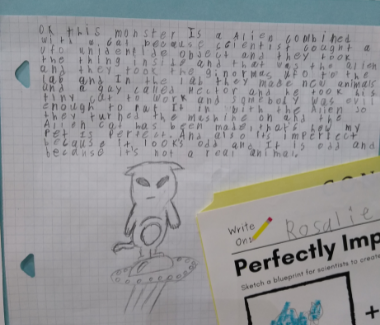 Ok this monster Is a Alien combined
with a cat because scientist cought a
ufo unidentide object and they took
the thing inside and that was the alien
and they took the ginormas ufo to the
lab and In the lab they made new animals
and a guy called Hector and he took his
tiny cat to work and somebody was evil
enough to put It in with the Alien so
they turned the mashine on and the
Alien cat was been made, that's how my
pet is perfect. And also Is imperfect
because it looks odd and It is odd and
because it's not a real animal
Write
On!
Rosalie
Perfectly Imp
Sketch a blueprint for scientists to create
+